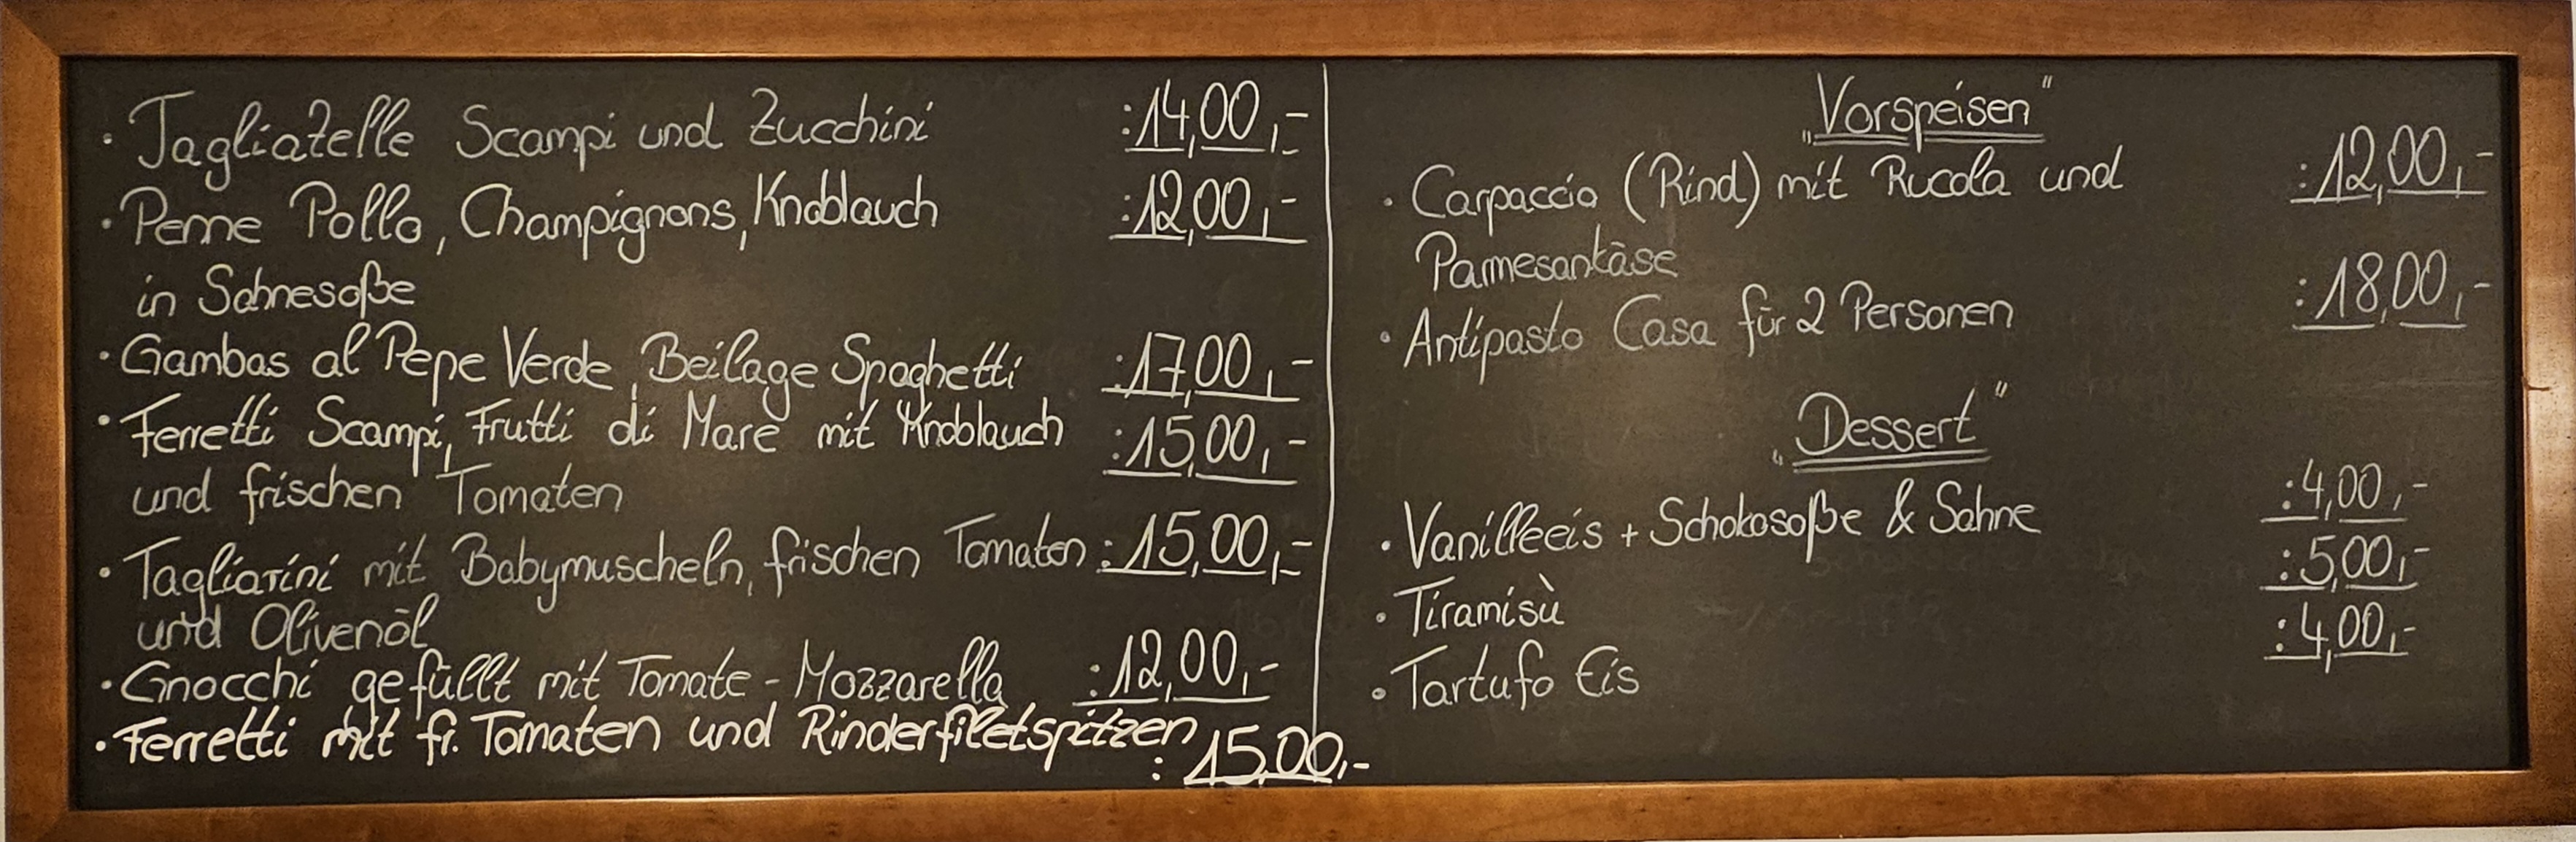 • Tagliatelle Scampi und Zucchini :14,00,-
• Penne Pollo, Champignons, Knoblauch :12,00,-
in Sahnesoße
• Gambas al Pepe Verde, Beilage Spaghetti :17,00,-
• Ferretti Scampi, Frutti di Mare mit Knoblauch :15,00,-
und frischen Tomaten
• Tagliarini mit Babymuscheln, frischen Tomaten :15,00,-
und Olivenöl
• Gnocchi gefüllt mit Tomate - Mozzarella :12,00,-
• Ferretti mit fr. Tomaten und Rinderfiletspitzen
: 15,00,-
„Vorspeisen"
• Carpaccio (Rind) mit Rucola und :12,00,-
Parmesankäse
• Antipasto Casa für 2 Personen :18,00,-
„Dessert"
• Vanilleeis + Schokosoße & Sahne :4,00,-
• Tiramisù :5,00,-
• Tartufo Eis :4,00,-